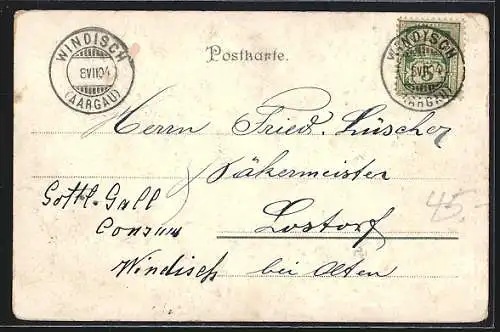 WINDISCH
8VII04
(AARGAU)
Postkarte.
WINDISCH
8VII04
(AARGAU)
5
Herrn Fried. Lüscher
Bäkermeister
Lostorf
bei Olten
Gottl. Gall
Consum
Windisch
45.-